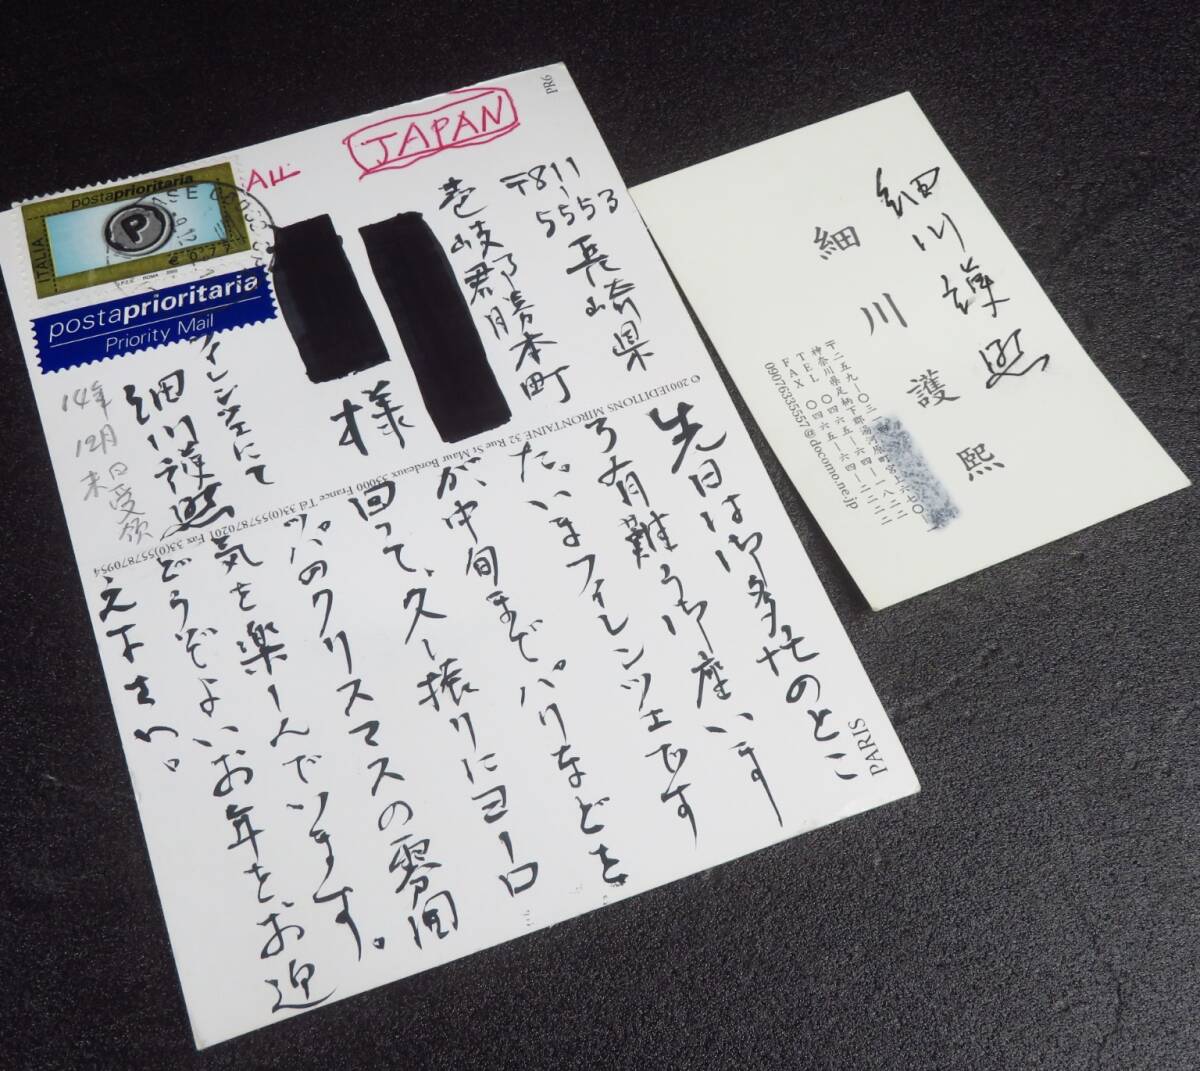 PR6
JAPAN
postaprioritaria
ITALIA
P
€ 0,77
I.P.Z.S. ROMA 2002
postaprioritaria
Priority Mail
〒811-5553
長崎県
壱岐郡勝本町
様
フィレンツェにて
細川護熙
14年
12月
末日受領
© 2001 EDITIONS MIRONTAINE 32 Rue St Maur Bordeaux 33000 France Tel 33(0)557870201 Fax 33(0)557870954
PARIS
先日は御多忙のとこ
ろ有難う御座います
た。いまフィレンツェです
が中旬までパリなどを
回って、久し振りにヨーロ
ッパのクリスマスの雰囲
気を楽しんでいます。
どうぞよいお年を、お迎
え下さい。
細川護熙
細川護熙
TEL 〇四六五―六四―一八二二
FAX 〇四六五―六四―二二二二
09076335557@docomo.ne.jp